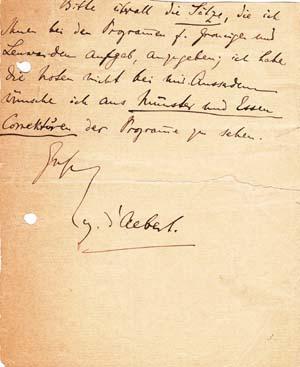 Bitte überall die Sätze, die ich
Ihnen bei den Programen f. Groningen und
Leuwarden aufgab, angegeben; ich habe
die Noten nicht bei mir. Ausserdem
wünsche ich aus Münster und Essen
Correktüren der Programe zu sehen.
Eug. d'Albert.